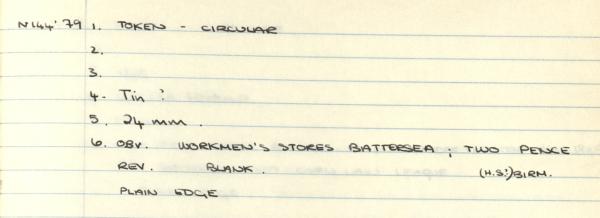 N144'79 1. TOKEN - CIRCULAR
2.
3.
4. Tin ?
5. 24 mm.
6. OBV. WORKMEN'S STORES BATTERSEA ; TWO PENCE
REV. BLANK. (H.S.?) BIRM.
PLAIN EDGE